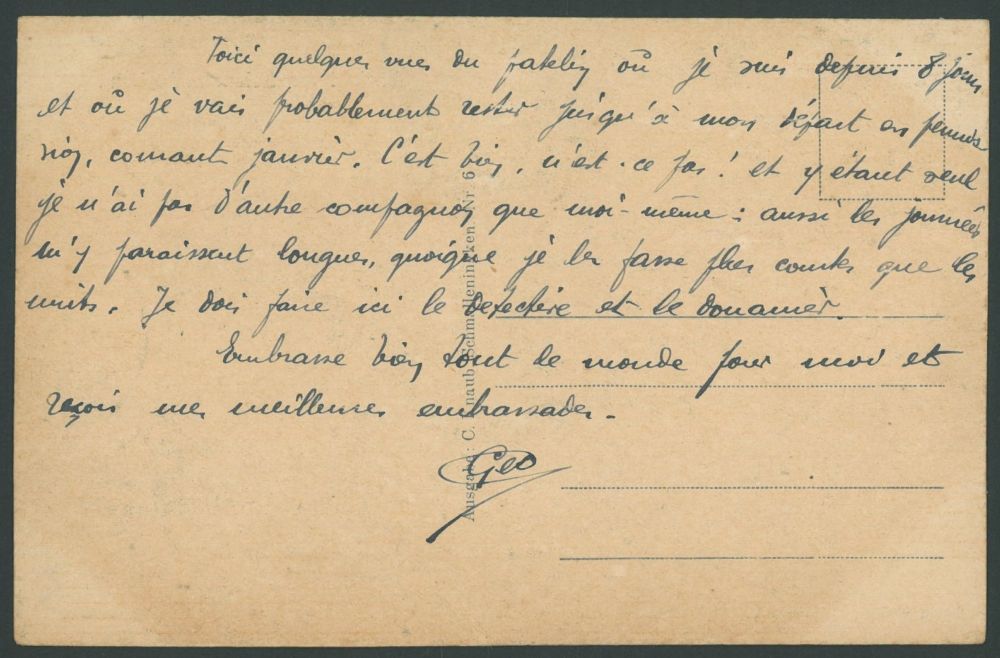 Voici quelques vues du patelin où je suis depuis 8 jours
et où je vais probablement rester jusqu'à mon départ en permis-
sion, courant janvier. C'est bien, n'est-ce pas! et y étant seul
je n'ai pas d'autre compagnon que moi-même: aussi les journées
m'y paraissent longues, quoique je les fasse plus courtes que les
nuits. Je dois faire ici le détective et le douanier.
Embrasse bien tout le monde pour moi et
reçois mes meilleures embrassades.
Geo
Ausgabe: C. Knaub, Schmalleningken Nr. 6